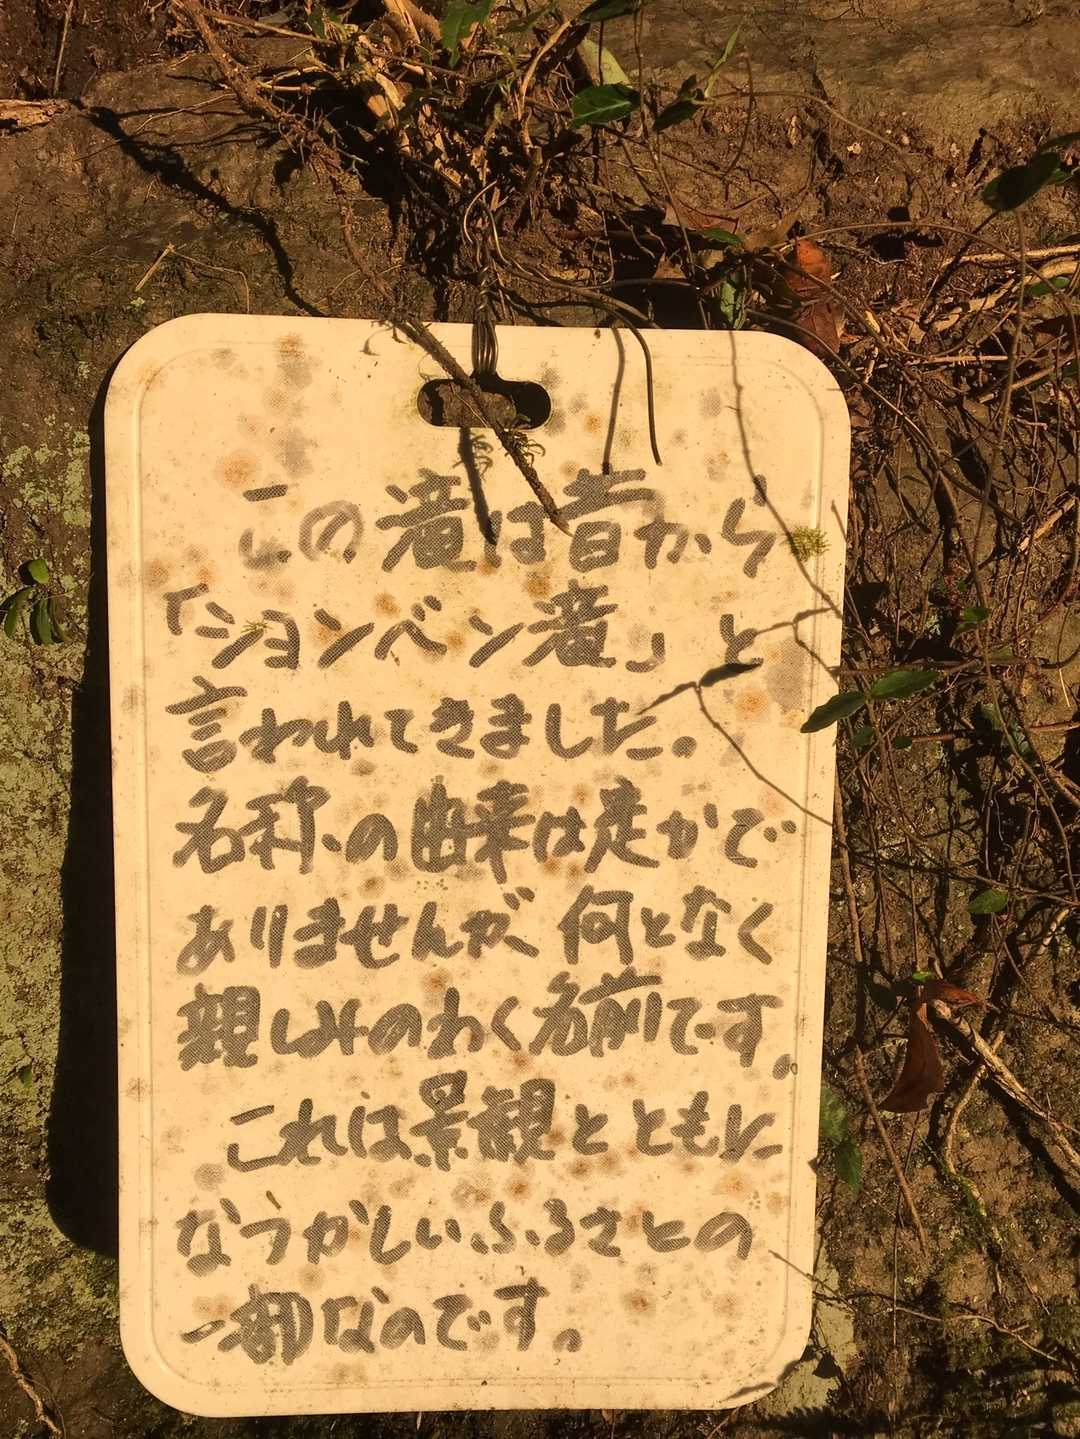 この滝は昔から
「ションベン滝」と
言われてきました。
名称の由来は定かで
ありませんが、何となく
親しみのわく名前です。
これは景観とともに
なつかしいふるさとの
一部なのです。